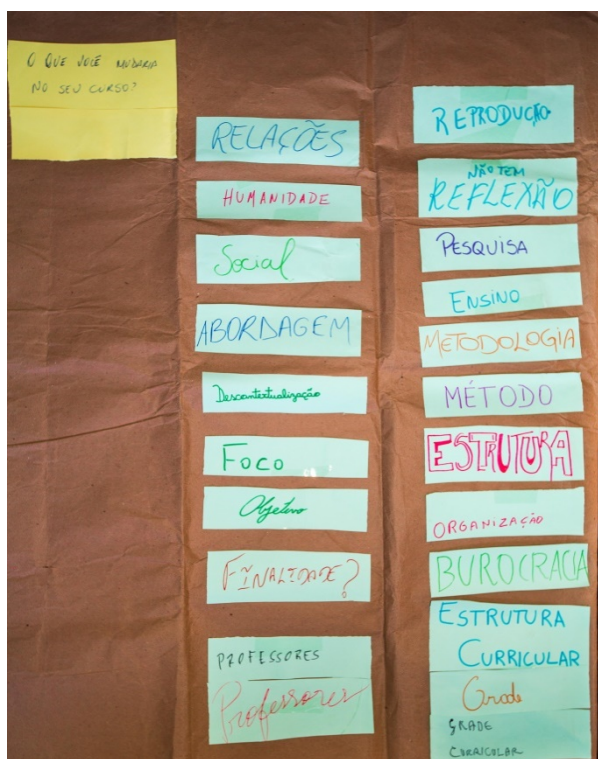 O QUE VOCÊ MUDARIA
NO SEU CURSO?
RELAÇÕES
HUMANIDADE
Social
ABORDAGEM
Descontextualização
Foco
Objetivo
FINALIDADE?
PROFESSORES
Professores
REPRODUÇÃO
NÃO TEM
REFLEXÃO
PESQUISA
ENSINO
METODOLOGIA
MÉTODO
ESTRUTURA
ORGANIZAÇÃO
BUROCRACIA
ESTRUTURA
CURRICULAR
Grade
GRADE
CURRICULAR